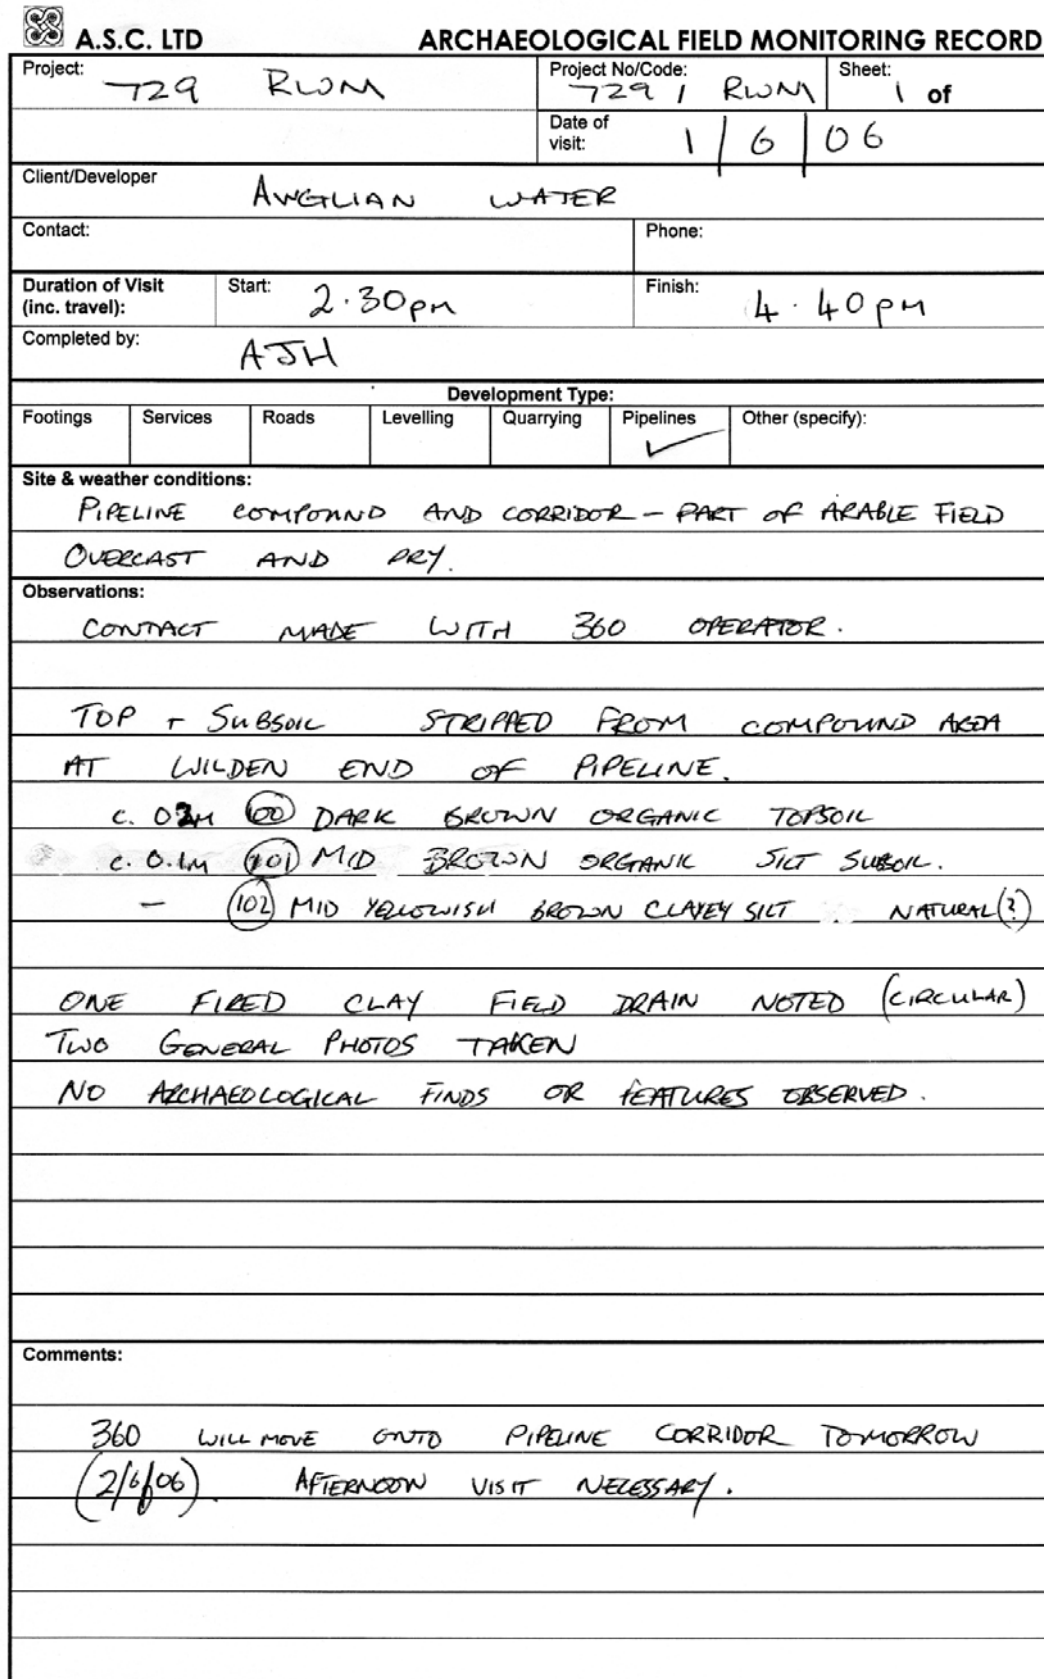 A.S.C. LTD ARCHAEOLOGICAL FIELD MONITORING RECORD
Project: 729 RWM Project No/Code: 729 / RWM Sheet: 1 of
Date of visit: 1 / 6 / 06
Client/Developer ANGLIAN WATER
Contact: Phone:
Duration of Visit (inc. travel): Start: 2.30pm Finish: 4.40pm
Completed by: AJH
Development Type:
Footings Services Roads Levelling Quarrying Pipelines ✓ Other (specify):
Site & weather conditions:
PIPELINE COMPOUND AND CORRIDOR – PART OF ARABLE FIELD
OVERCAST AND DRY.
Observations:
CONTACT MADE WITH 360 OPERATOR.
TOP + SUBSOIL STRIPPED FROM COMPOUND AREA
AT WILDEN END OF PIPELINE.
c. 100 DARK BROWN ORGANIC TOPSOIL
c. 0.1M 101 MID BROWN ORGANIC SILT SUBSOIL.
– 102 MID YELLOWISH BROWN CLAYEY SILT NATURAL(?)
ONE FIRED CLAY FIELD DRAIN NOTED (CIRCULAR)
TWO GENERAL PHOTOS TAKEN
NO ARCHAEOLOGICAL FINDS OR FEATURES OBSERVED.
Comments:
360 WILL MOVE ONTO PIPELINE CORRIDOR TOMORROW
(2/6/06). AFTERNOON VISIT NECESSARY.